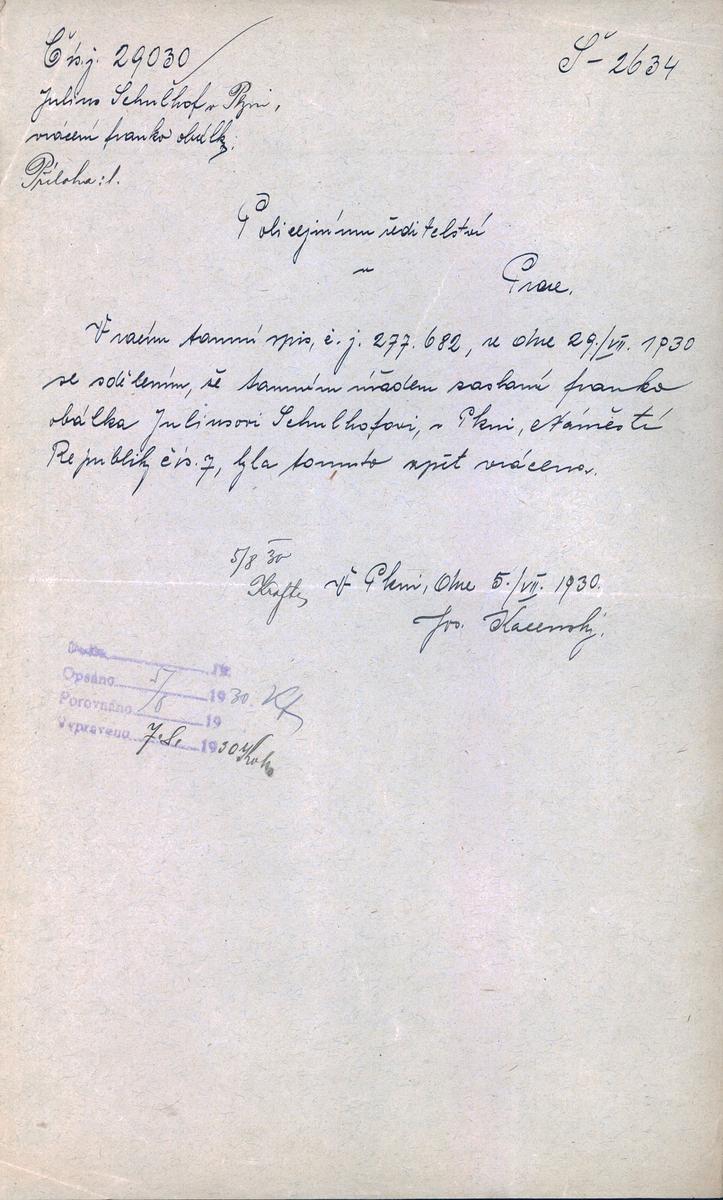 Čís.j. 29030
Š-2634
Julius Schulhof v Plzni,
vrácení franko obálky.
Příloha: 1.
Policejnímu ředitelství
v
Praze.
Vracím tamní spis, č. j. 277.682, ze dne 29./VII. 1930
se sdělením, že tamním úřadem zaslaná franko
obálka Juliusovi Schulhofovi, v Plzni, Náměstí
Republiky čís. 7, byla tomuto zpět vrácena.
5/8 30
V Plzni, dne 5./VII. 1930.
Jos.
Došlo 19
Opsáno 5/8 1930.
Porovnáno 19
Vypraveno 7.8. 1930